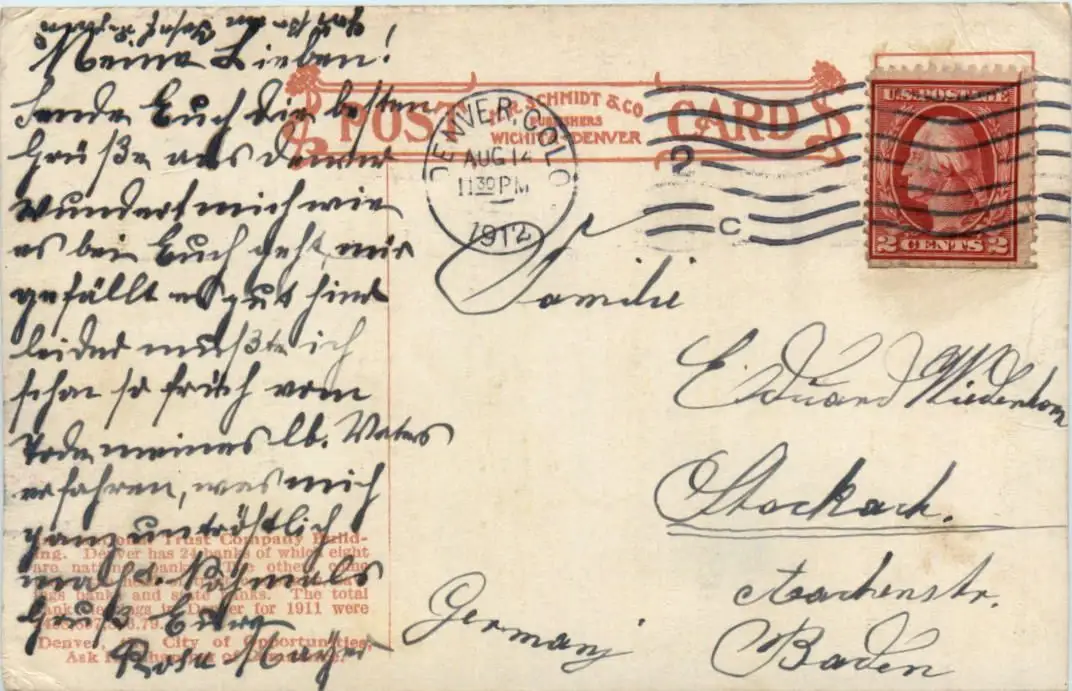 Meine Lieben!
Sende Euch die besten
Grüße aus Denver
Wundert mich wie
es bei Euch geht, mir
gefällt es gut hier
leider mußte ich
schon so früh vom
Tode meines lb. Vaters
erfahren, was mich
ganz untröstlich
macht. Nochmals
Grüß Euch
Rosa Mayer
POST CARD
H.R. SCHMIDT & CO
PUBLISHERS
WICHITA DENVER
DENVER, COLO
AUG 12
11 30 PM
1912
2
C
U.S. POSTAGE
2 CENTS 2
Familie
Eduard Wiedenhorn
Stockach.
Aachenstr.
Germany
Baden
Trust Company Build-
ing. Denver has 24 banks of which eight
are national banks. The others
banks and state banks. The total
bank clearings in Denver for 1911 were
Denver, the City of Opportunities,
Ask